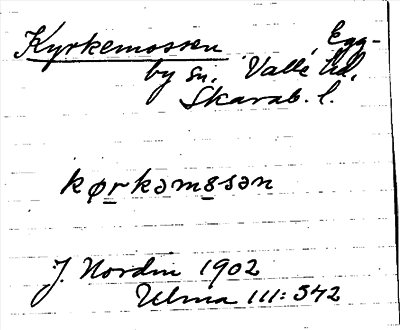 Kyrkemossen Egg-
by sn. Valle hd,
Skarab. l.
kørkəmssən
J. Nordin 1902
Ulma 111: 542